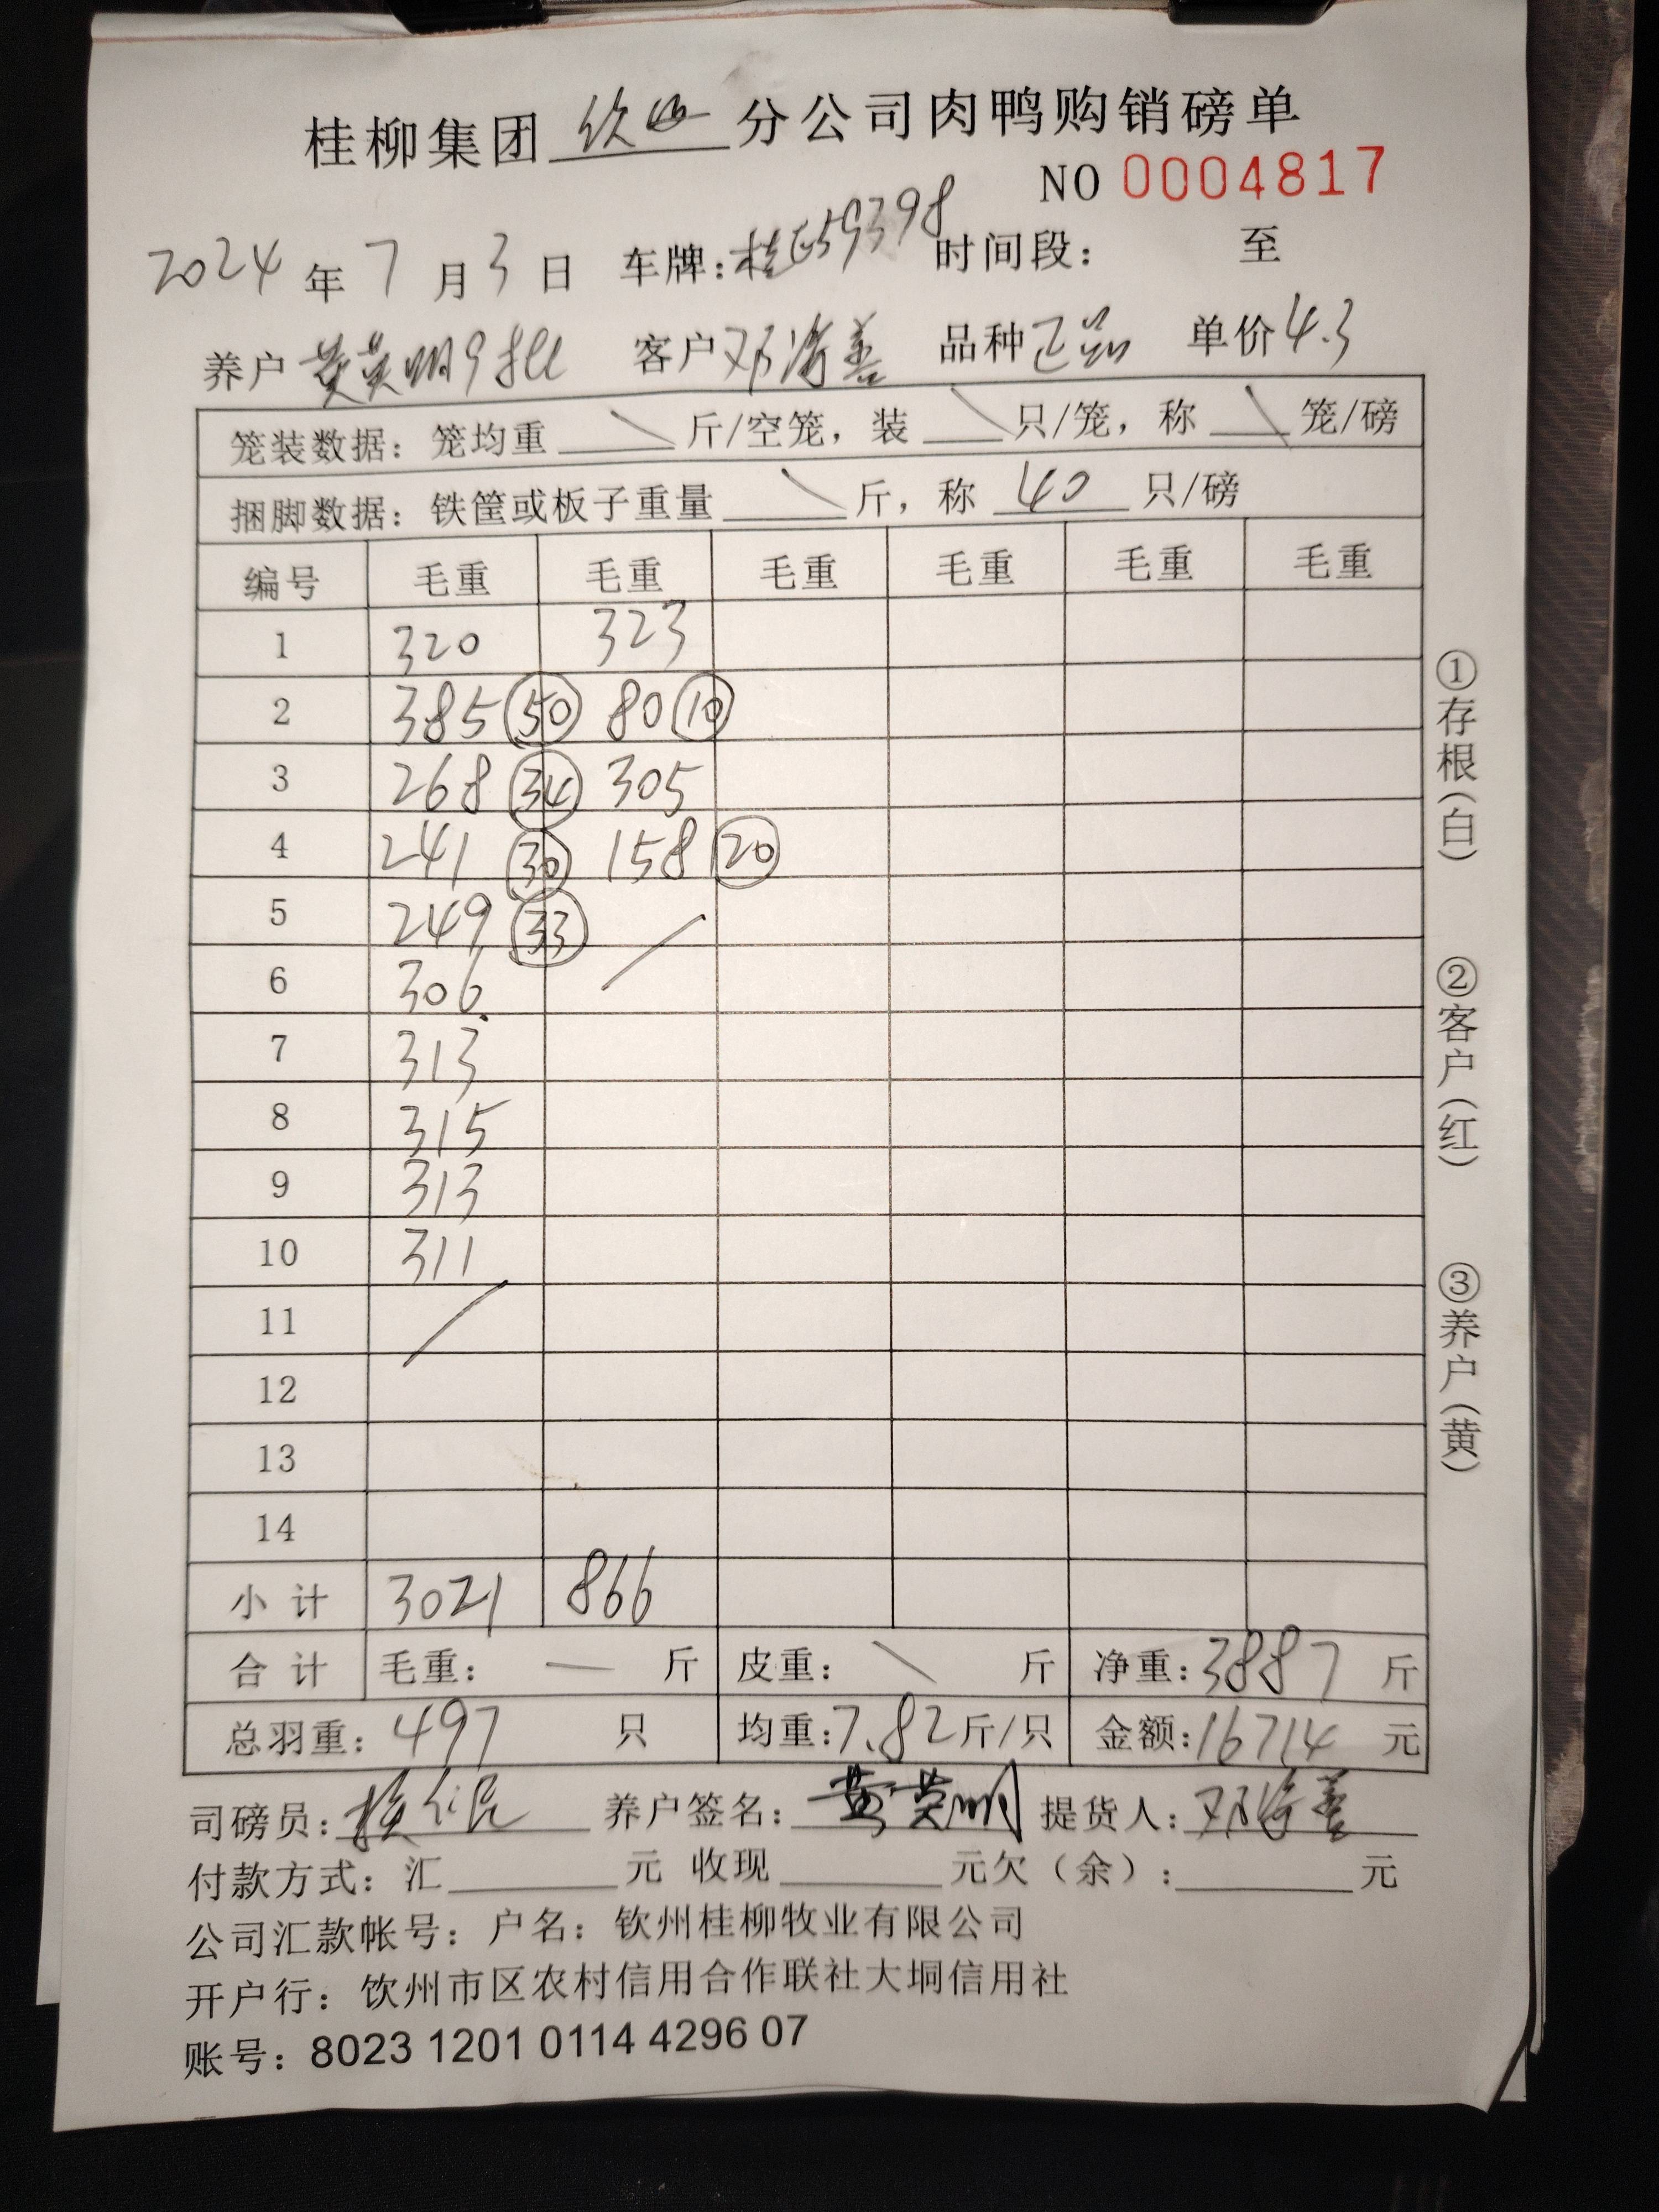 桂柳集团 钦州 分公司肉鸭购销磅单
NO 0004817
2024 年 7 月 3 日 车牌:桂E59398 时间段: 至
养户 黄英明9批 客户 邓海善 品种 正品 单价 4.3
笼装数据: 笼均重 \ 斤/空笼, 装 \ 只/笼, 称 \ 笼/磅
捆脚数据: 铁筐或板子重量 \ 斤, 称 40 只/磅
编号 毛重 毛重 毛重 毛重 毛重 毛重
1 320 323
2 385 50 80 10
3 268 34 305
4 241 30 158 20
5 249 33 /
6 306
7 313
8 315
9 313
10 311
11 /
12
13
14
小计 3021 866
合计 毛重: — 斤 皮重: \ 斤 净重: 3887 斤
总羽重: 497 只 均重: 7.82 斤/只 金额: 16714 元
司磅员: 养户签名: 黄英明 提货人: 邓海善
付款方式: 汇 元 收现 元欠(余): 元
公司汇款帐号: 户名: 钦州桂柳牧业有限公司
开户行: 钦州市区农村信用合作联社大垌信用社
账号: 8023 1201 0114 4296 07
①存根(白)
②客户(红)
③养户(黄)